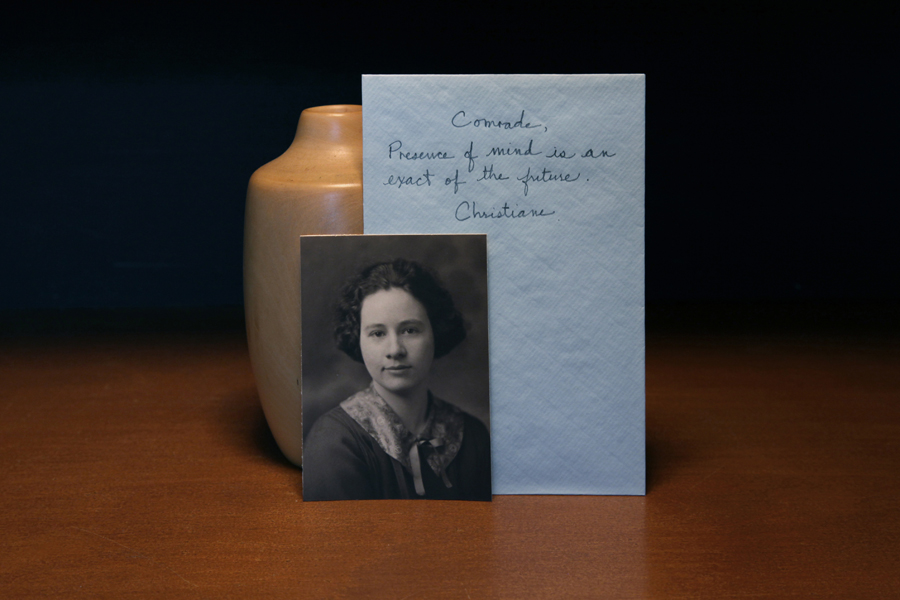 Comrade,
Presence of mind is an
exact of the future.
Christiane